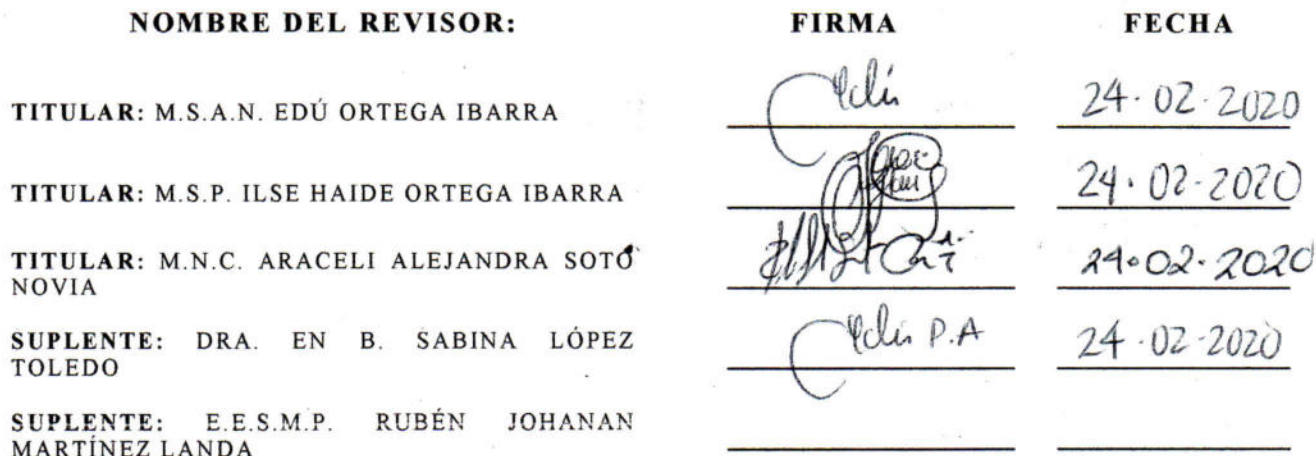 NOMBRE DEL REVISOR: FIRMA FECHA
TITULAR: M.S.A.N. EDÚ ORTEGA IBARRA 24·02·2020
TITULAR: M.S.P. ILSE HAIDE ORTEGA IBARRA 24·02-2020
TITULAR: M.N.C. ARACELI ALEJANDRA SOTO 24·02·2020
NOVIA
SUPLENTE: DRA. EN B. SABINA LÓPEZ P.A 24·02-2020
TOLEDO
SUPLENTE: E.E.S.M.P. RUBÉN JOHANAN
MARTÍNEZ LANDA